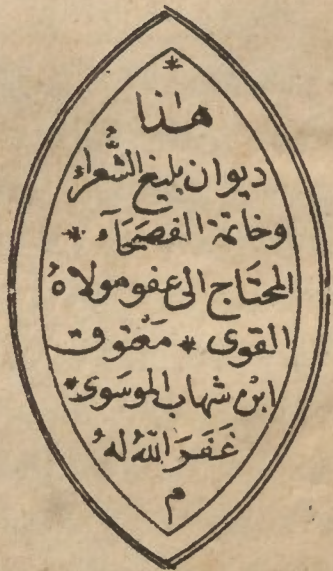 *
هٰذا
ديوان بليغ الشُّعراء
وخاتمة الفصحَآء *
المحتَاج الى عفو مولاهُ
القوى * مَعْتوق
ابن شهاب الموسَوى *
غَفَرَ اللّٰهُ لهُ
م